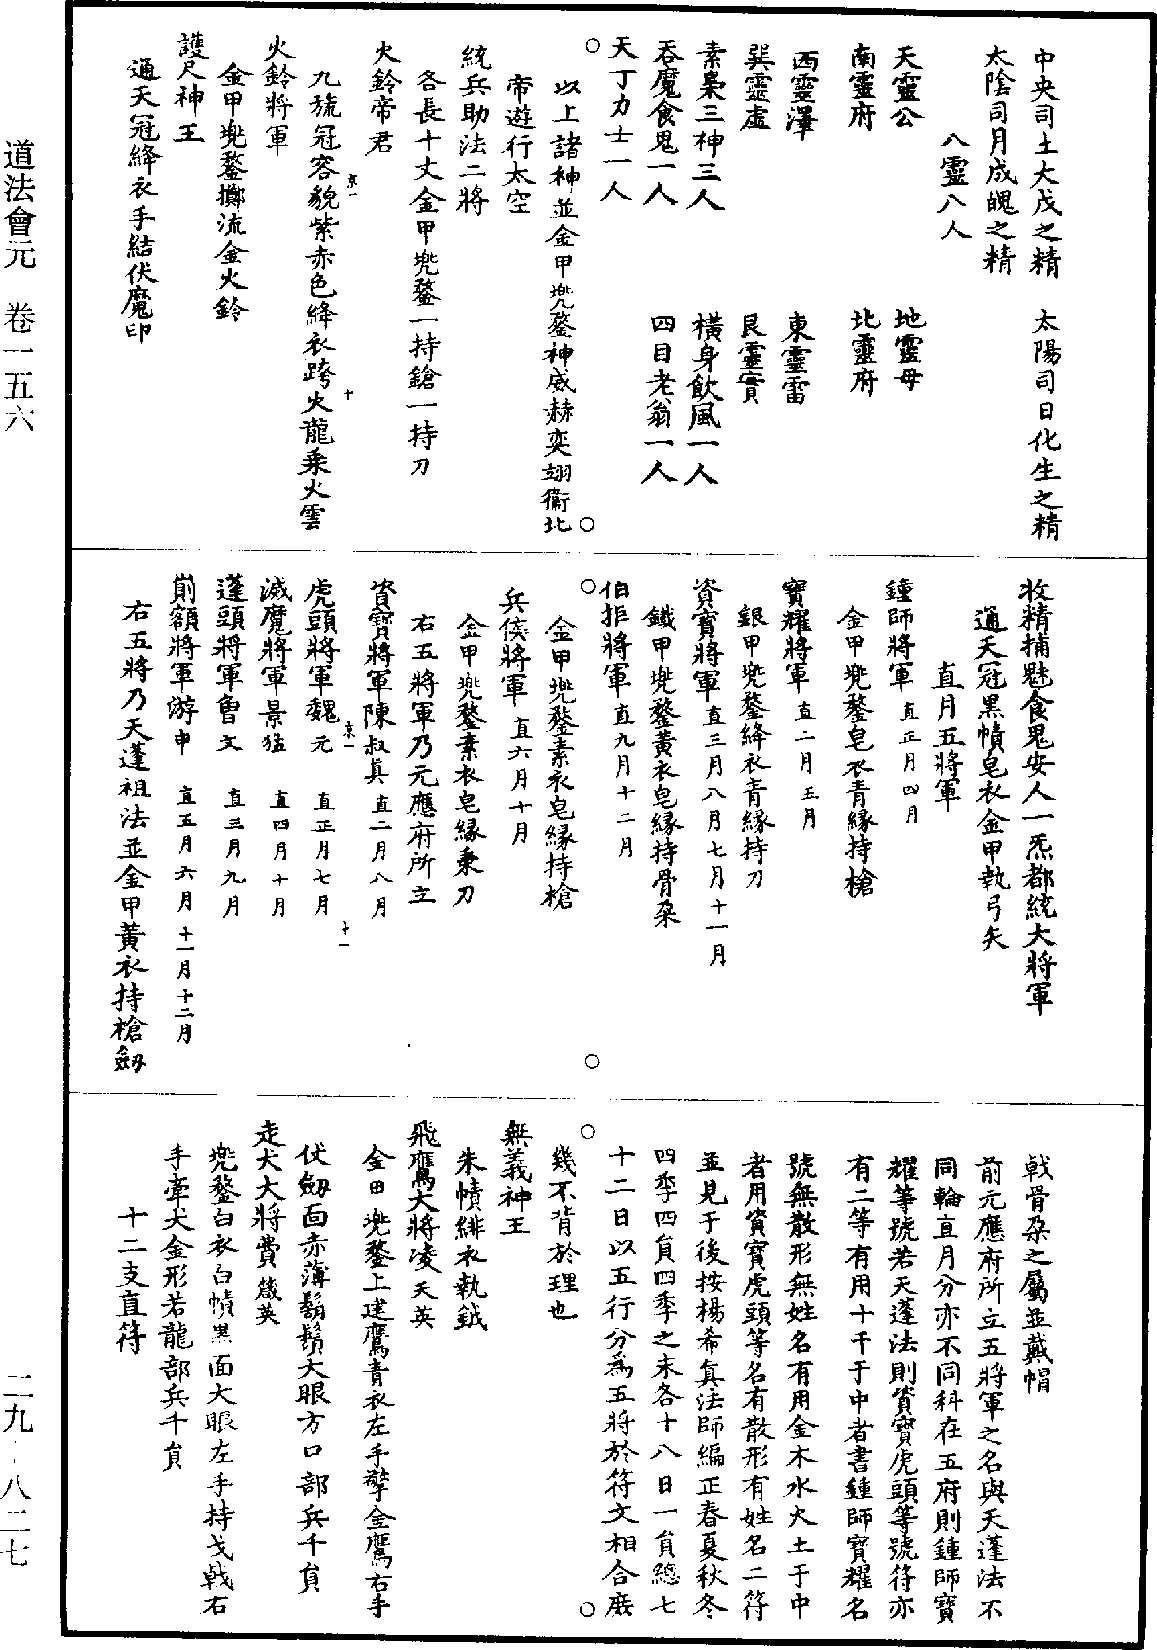 中央司土大戊之精　太陽司日化生之精
太陰司月成魄之精
八靈八人
天靈公　地靈母
南靈府　北靈府
西靈澤　東靈雷
巽靈虛　艮靈實
素裊三神三人　橫身飲風一人
吞魔食鬼一人　四目老翁一人
天丁力士一人
○　○
以上諸神並金甲兜鍪神威赫奕翊衛北
帝遊行太空
統兵助法二將
各長十丈金甲兜鍪一持鎗一持刀
火鈴帝君
京一　十
九旒冠容貌紫赤色絳衣跨火龍乘火雲
火鈴將軍
金甲兜鍪擲流金火鈴
護尺神王
通天冠絳衣手結伏魔印
收精捕魅食鬼安人一炁都統大將軍
通天冠黑幘皂衣金甲執弓矢
直月五將軍
鍾師將軍　直正月四月
金甲兜鍪皂衣青緣持槍
寶耀將軍　直二月五月
銀甲兜鍪絳衣青緣持刀
資寶將軍　直三月八月七月十一月
鐵甲兜鍪黃衣皂緣持骨朵
伯拒將軍　直九月十二月
○　○
金甲兜鍪素衣皂緣持槍
兵倓將軍　直六月十月
金甲兜鍪素衣皂緣秉刀
右五將軍乃元應府所立
資寶將軍陳叔真　直二月八月
京一　十一
虎頭將軍魏元　直正月七月
滅魔將軍景猛　直四月十月
蓬頭將軍曹文　直三月九月
剪額將軍游申　直五月六月十一月十二月
右五將乃天蓬祖法並金甲黃衣持槍劔
戟骨朵之屬並戴帽
前元應府所立五將軍之名與天蓬法不
同輪直月分亦不同科在五府則鍾師寶
耀等號若天蓬法則資寶虎頭等號符亦
有二等有用十干于中者書鍾師寶耀名
號無散形無姓名有用金木水火土于中
者用資寶虎頭等名有散形有姓名二符
並見于後按楊希真法師編正春夏秋冬
四季四員四季之末各十八日一員總七
十二日以五行分為五將於符文相合庶
○　○
幾不背於理也
無義神王
朱幘緋衣執鉞
飛鷹大將凌天英
金甲兜鍪上建鷹青衣左手擎金鷹右手
伏劔面赤薄鬍鬚大眼方口部兵千員
走犬大將費箴英
兜鍪白衣白幘黑面大眼左手持戈戟右
手牽犬金形若龍部兵千員
十二支直符
道法會元　卷一五六　二九·八二七